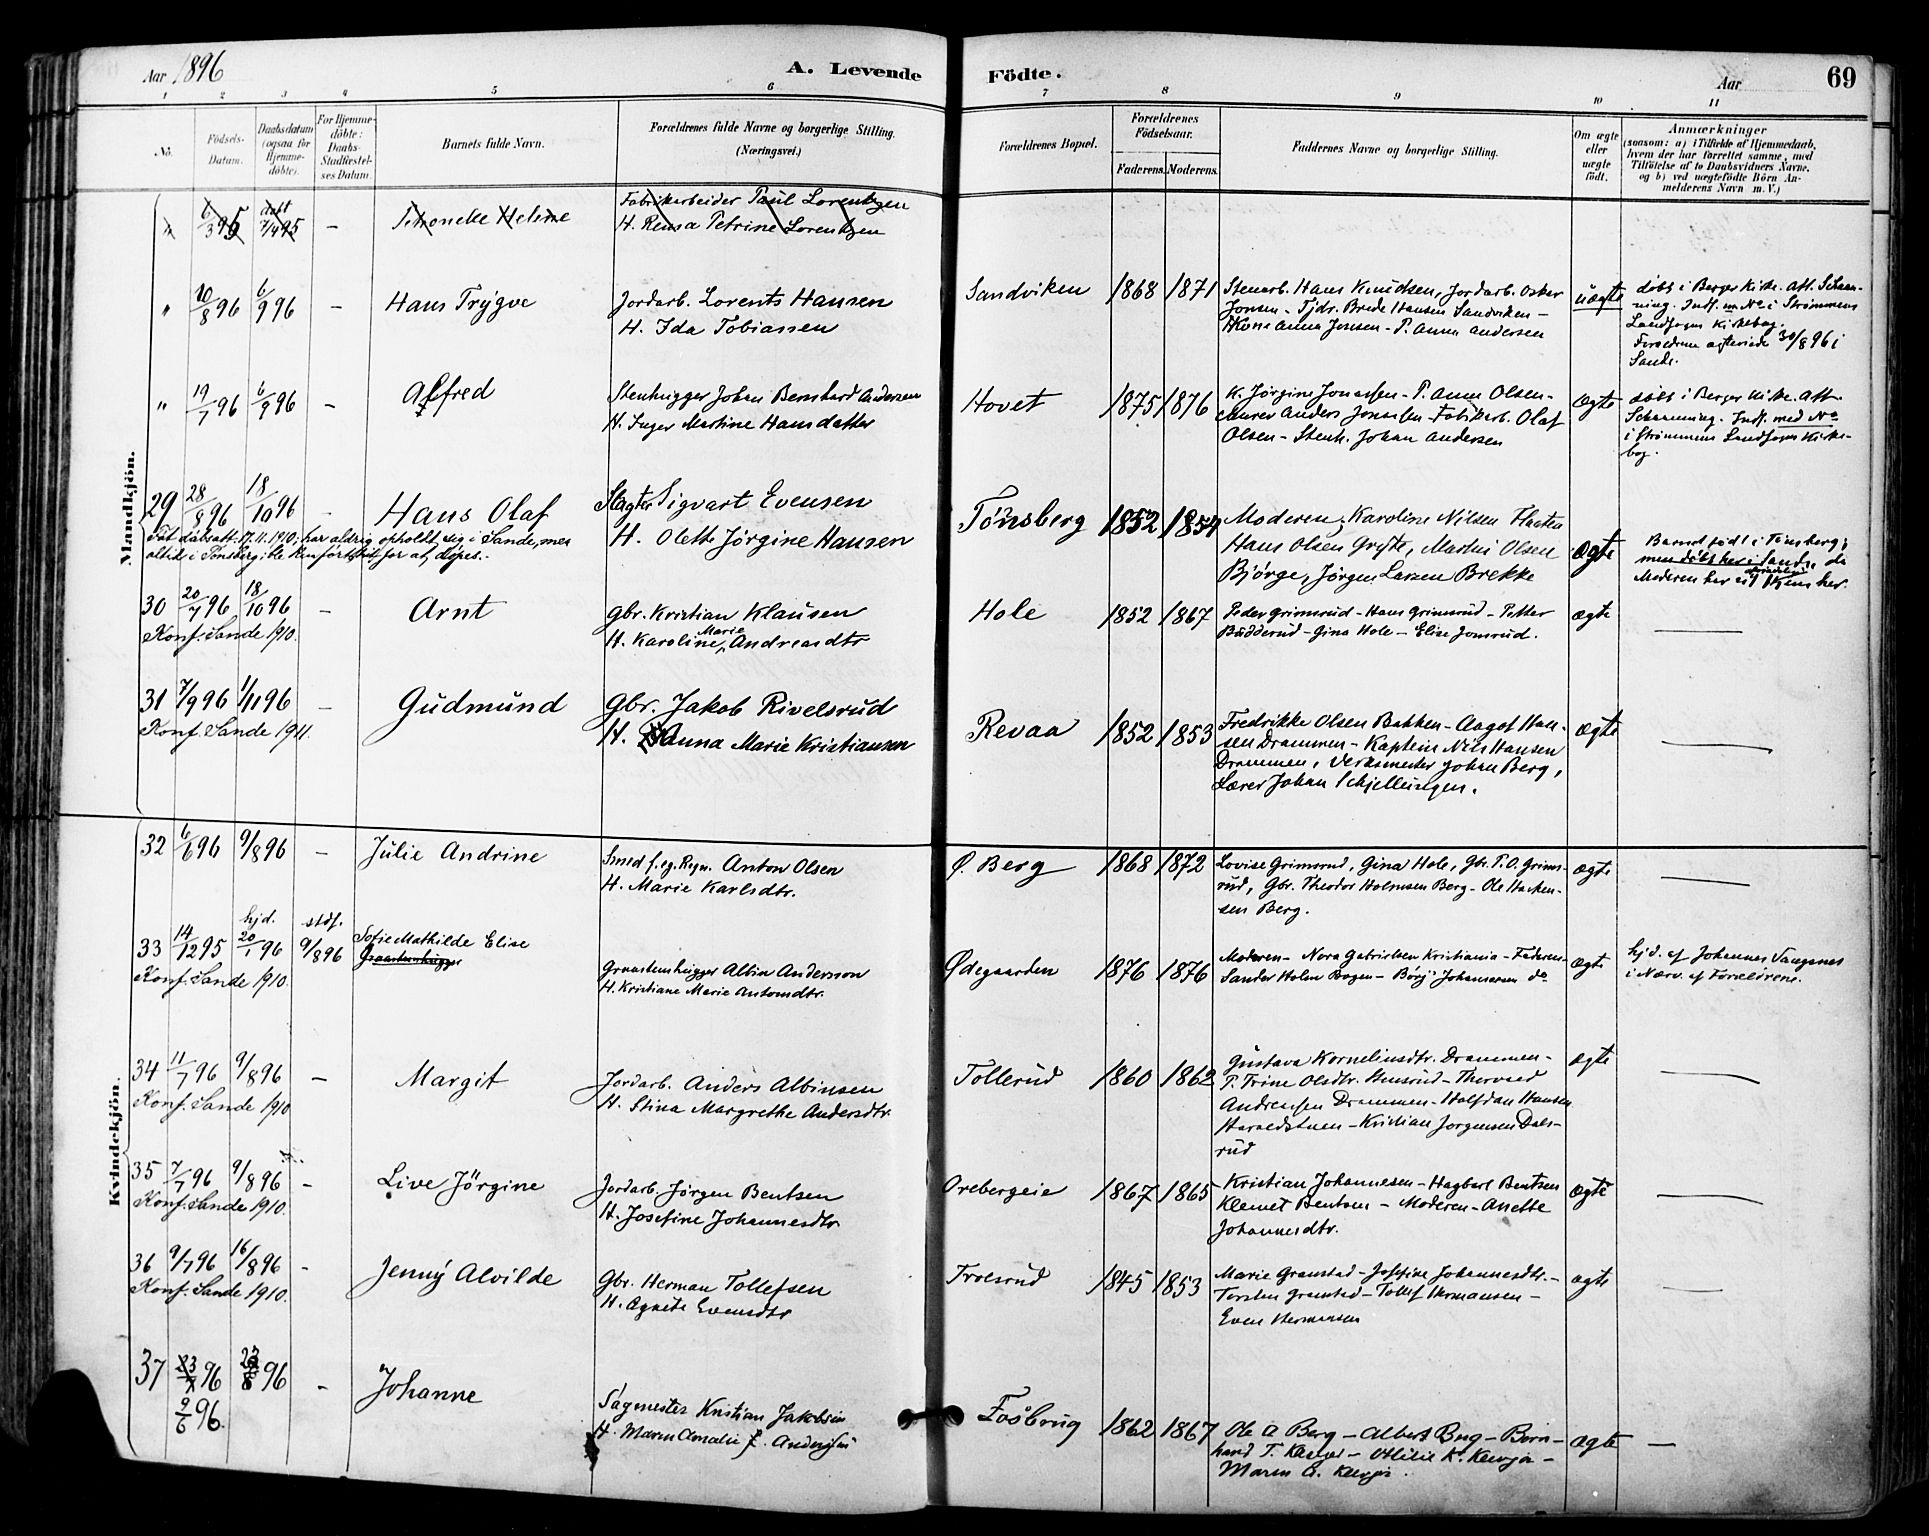 Aar 1896
A. Levende Födte.
Aar
69
1 2 3 4 5 6 7 8 9 10 11
No.
Födsels-Datum.
Daabsdatum (ogsaa for Hjemme-döbte).
For Hjemme-döbte: Daabs-Stadfæstel-ses Datum.
Barnets fulde Navn.
Forældrenes fulde Navne og borgerlige Stilling.
(Næringsvei.)
Forældrenes Bopæl.
Forældrenes Födselsaar.
Faderens. Moderens.
Faddernes Navne og borgerlige Stilling.
Om ægte eller uægte födt.
Anmærkninger
(saasom: a) i Tilfælde af Hjemmedaab,
hvem der har forrettet samme, med
Tilföielse af to Daabsvidners Navne,
og b) ved uægtefödte Börn An-
melderens Navn m. V.)
Mandkjön.
" 6/3 95 døbt 7/4 95 - Petroneke Helene Fabrikarbeider Paul Lorentzen
H. Rensa Petrine Lorentzen
" 10/8 96 6/9 96 - Hans Trygve Jordarb. Lorents Hansen
H. Ida Tobiassen
Sandviken 1868 1871 Stenarb. Hans Knudsen, Jordarb. Oskar
Jonsen - Tjdr. Brede Hansen Sandviken -
Kone Anna Jensen - P. Anna Andersen
uægte
døbt i Berger Kirke. Att. Schan-
ning. Indf. m No i Strømmens
Landsogns Kirkebog.
Forældrene ægteviede 30/8 96 i
Sande.
" 19/7 96 6/9 96 - Alfred Stenhugger Johan Bernhard Andersen
H. Inger Martine Hansdatter
Hovet 1875 1876 K. Jörgine Jonassen - P. Anna Olsen -
Anders Jonassen - Fabrikarb. Olaf
Olsen - Stenh. Johan Andersen
ægte
døbt i Berger Kirke. Att.
Schanning. Indf. med No
i Strømmens Landsogns Kirke-
bog.
29 28/8 96 18/10 96 - Hans Olaf Slagter Sigvart Evensen
H. Olette Jørgine Hansen
Fåt dåbsatt. 17.11.1910; har aldrig opholdt sig i Sande, men
altid i Tønsberg; ble kun fört hit for at döpes.-
Tönsberg 1852 1854 Moderen, Karoline Nilsen
Hans Olsen Gryte, Martin Olsen
Bjørge, Jørgen Larsen Brekke
ægte
Barnet født i Tønsberg;
men døbt her i Sande da
Moderen her
30 20/7 96 18/10 96 - Arnt Gbr. Kristian Klausen
H. Karoline Marie Andreasdtr
Konf. Sande 1910.
Hole 1852 1867 Peder Grimsrud - Hans Grimsrud - Petter
Budderud - Gina Hole - Elise Jonsrud.
ægte
31 7/9 96 1/11 96 - Gudmund Gbr. Jakob Rivelsrud
H. Anna Marie Kristiansen
Konf. Sande 1911.
Revaa 1852 1853 Fredrikke Olsen Bakken - Aagot Han-
sen Drammen - Kaptein Nils Hansen
Drammen, Verksmester Johan Berg,
Lærer Johan Schjellungen.
ægte
Kvindekjön.
32 6/6 96 9/8 96 - Julie Andrine Smed f. eg. Regn. Anton Olsen
H. Marie Karlsdtr.
Ø. Berg 1868 1872 Lovise Grimsrud, Gina Hole, Gbr. P.O. Grims-
rud, Gbr. Theodor Holmsen Berg - Ole Haaken-
sen Berg.
ægte
33 14/12 95 hjd. 20/1 96 stdf. 9/8 96 Sofie Mathilde Elise
Graastenhugger
Graastenshugger Albin Andersson
H. Kristiane Marie Antonsdtr.
Konf. Sande 1910.
Ødegaarden 1876 1876 Moderen - Nora Gabrielsen Kristiania - Faderen
Sander Holm Bogen - Börj Johannesen do
ægte
hjd. af Johannes Vangsnes
i Nærv. af Forældrene.
34 11/7 96 9/8 96 - Margit Jordarb. Anders Albinsen
H. Stina Margrethe Andersdtr.
Konf. Sande 1910
Tollerud 1860 1862 Gustava Kornelinsdtr. Drammen -
P. Trine Olsdtr. - Thorvald
Andreasen Drammen - Halfdan Hansen
Haraldstuen - Kristian Jørgensen Dals-
rud
ægte
35 7/7 96 9/8 96 - Live Jörgine Jordarb. Jørgen Bentsen
H. Josefine Johannesdtr
Konf. Sande 1910.
Orebergeie 1867 1865 Kristian Johannesen - Hagbart Bentsen
Klemet Bentsen - Moderen - Anette
Johannesdtr.
ægte
36 9/7 96 16/8 96 - Jenny Alvilde Gbr. Herman Tollefsen
H. Agnete Evensdtr
Konf. Sande 1910.
Trolsrud 1845 1853 Marie Gramstad - Josefine Johannesdtr. -
Torsten Gramstad - Tollef Hermansen -
Even Hermansen
ægte
37 23/7 96 23/8 96 - Johanne Sagmester Kristian Jakobsen
H. Maren Amalie f. Andersen
9/6 96.
Fosbrug 1862 1867 Ole A Berg - Albert Berg - Bern-
hard T. - Othilie K. -
Maren
ægte